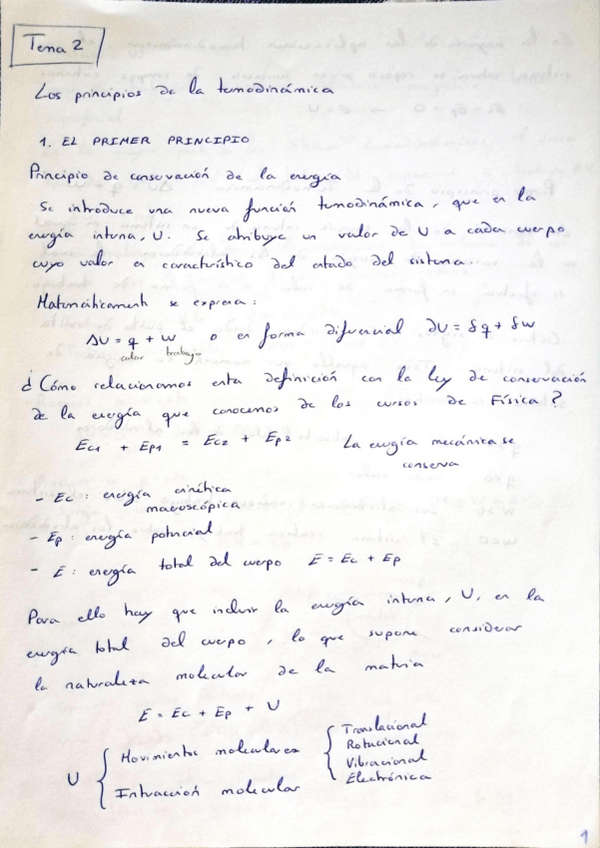 Tema 2
Los principios de la termodinámica
1. EL PRIMER PRINCIPIO
Principio de conservación de la energía
Se introduce una nueva función termodinámica, que es la
energía interna, U. Se atribuye un valor de U a cada cuerpo
cuyo valor es característico del estado del sistema.
Matemáticamente se expresa:
ΔU = q + w o en forma diferencial dU = δq + δw
calor trabajo
¿Cómo relacionamos esta definición con la ley de conservación
de la energía que conocemos de los cursos de Física?
Ec1 + Ep1 = Ec2 + Ep2 La energía mecánica se
conserva
- Ec: energía cinética
macroscópica
- Ep: energía potencial
- E: energía total del cuerpo E = Ec + Ep
Para ello hay que incluir la energía interna, U, en la
energía total del cuerpo, lo que supone considerar
la naturaleza molecular de la materia
E = Ec + Ep + U
U { Movimientos moleculares { Translacional
Rotacional
Vibracional
Electrónica
Interacción molecular
1